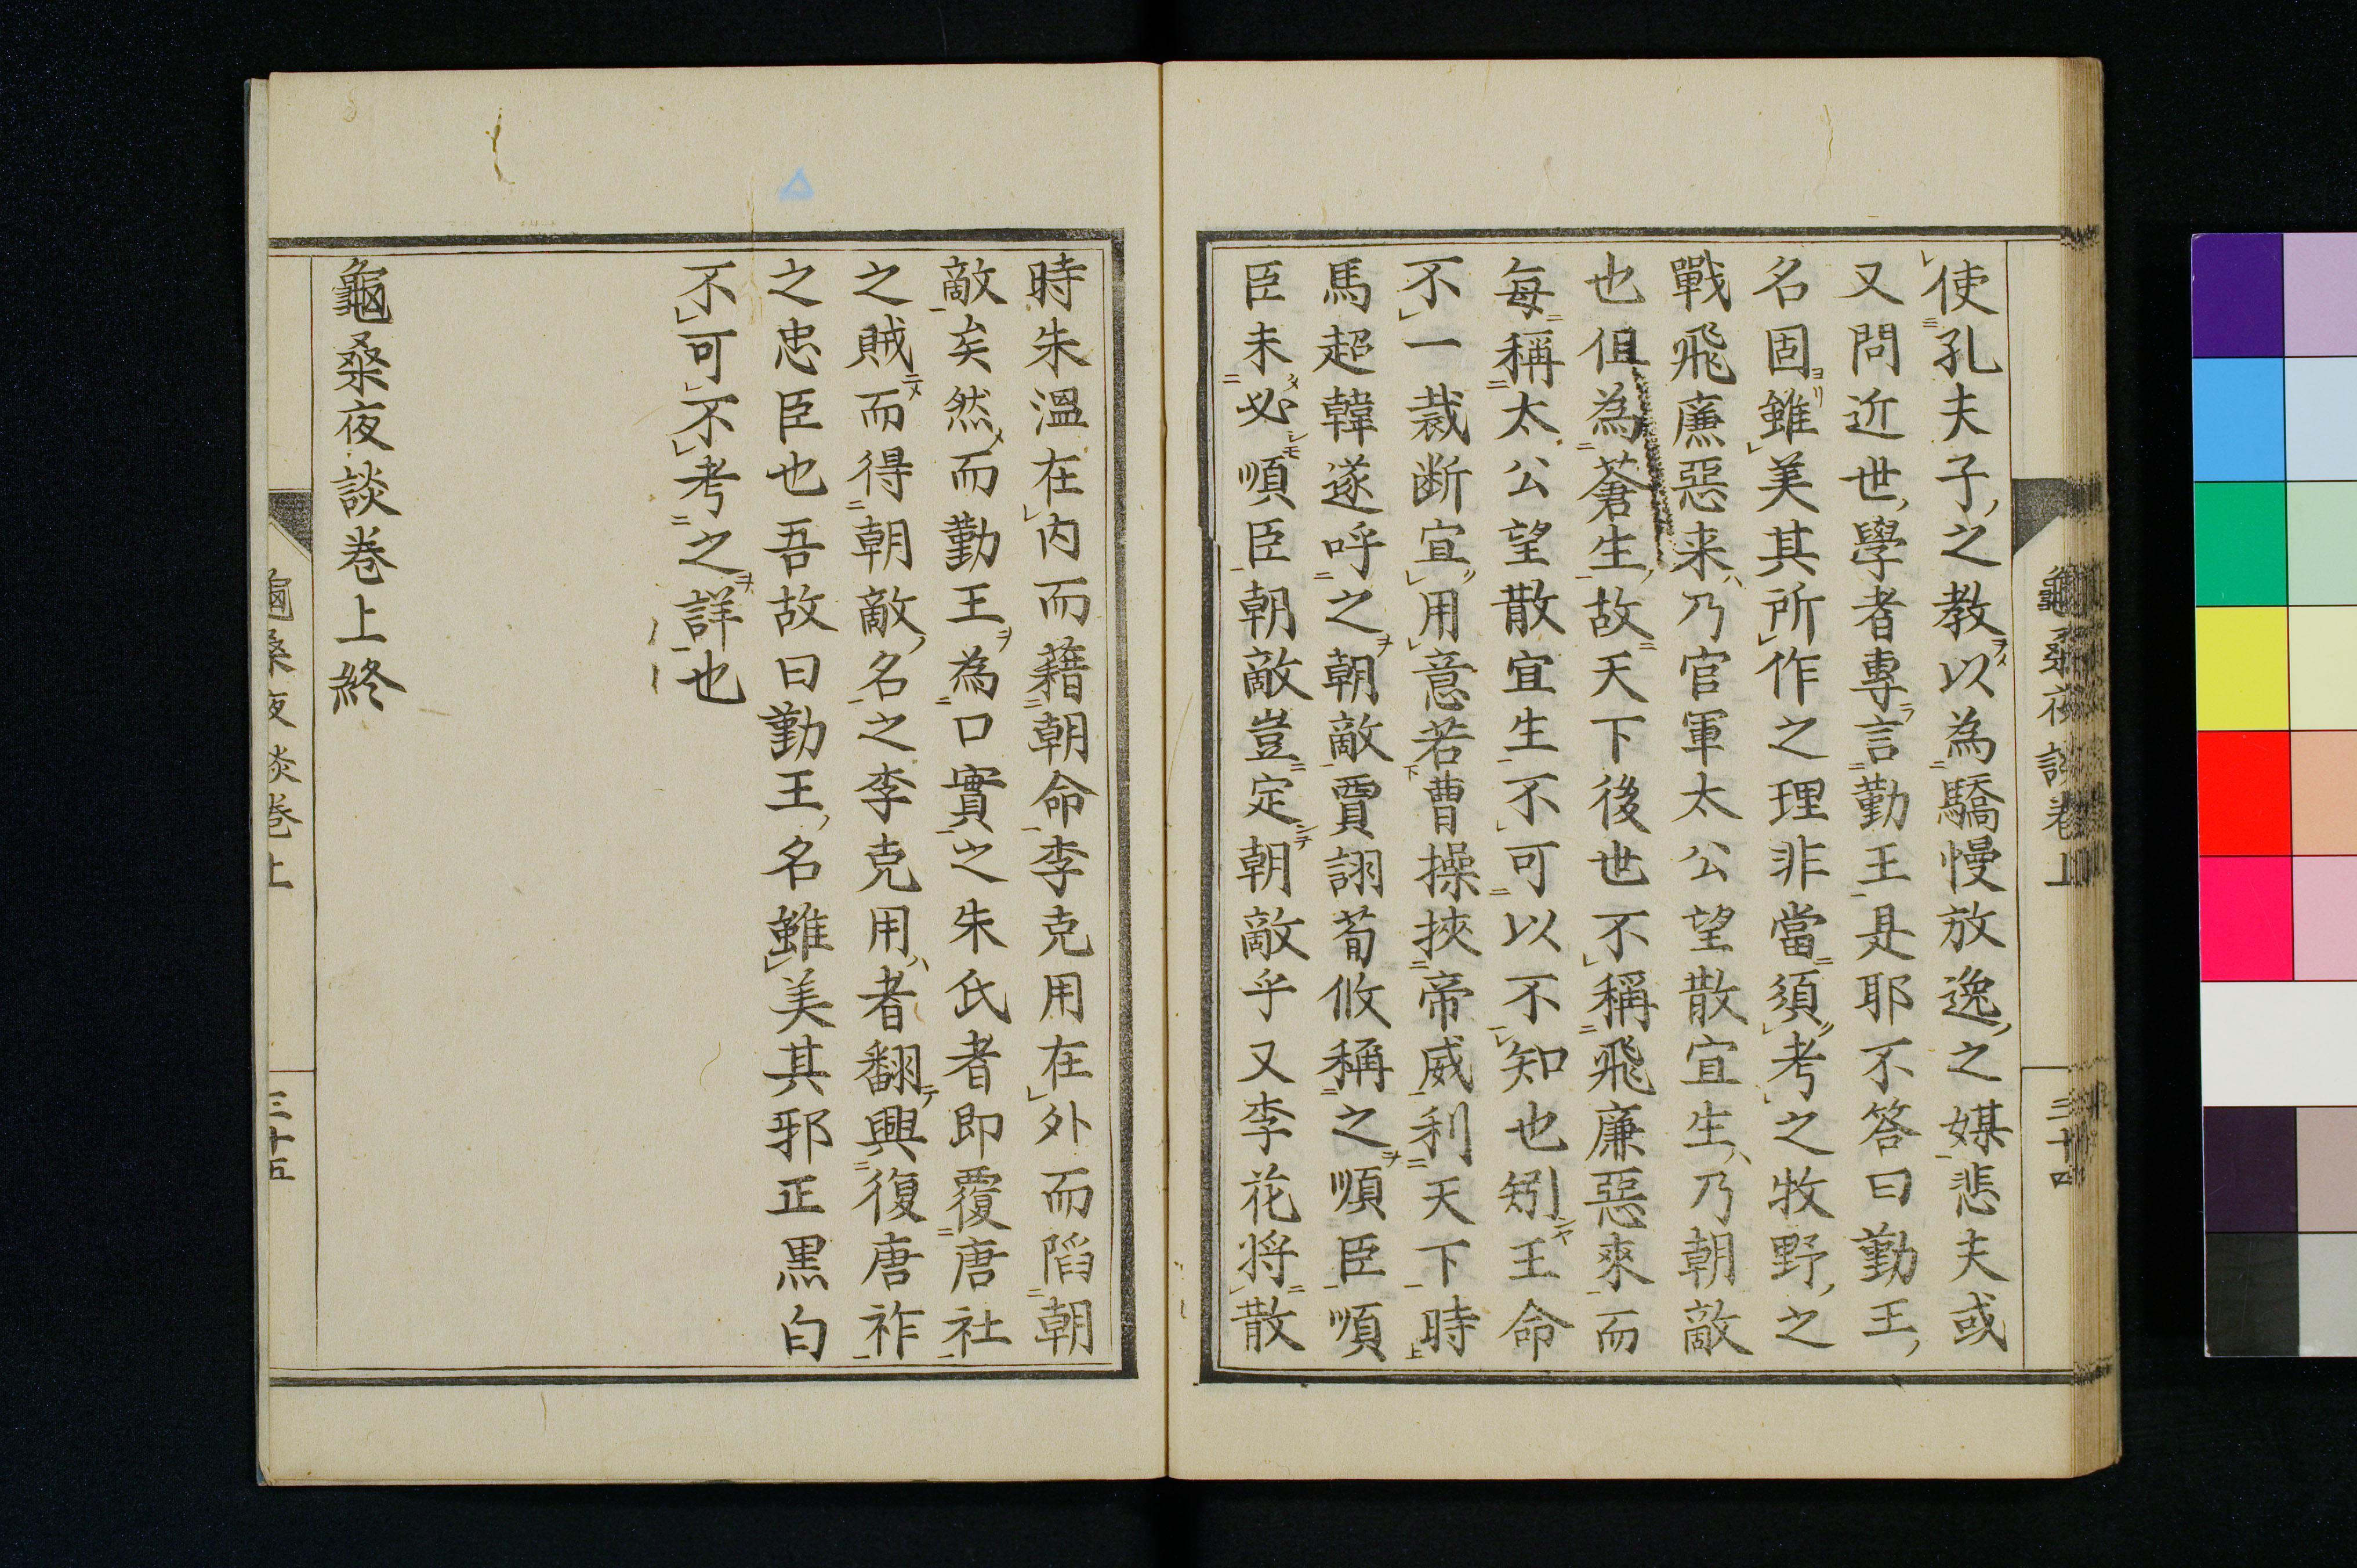 龜桑夜談卷上
三十四
使孔夫子之教以為驕慢放逸之媒悲夫或
又問近世學者專言勤王是耶不答曰勤王
名固雖美其所作之理非當須考之牧野之
戰飛廉惡来乃官軍太公望散宜生乃朝敵
也但為蒼生故天下後世不稱飛廉惡來而
每稱太公望散宜生不可以不知也矧王命
不一裁断宜用意若曹操挾帝威利天下時
馬超韓遂呼之朝敵賈詡荀攸稱之順臣順
臣未必順臣朝敵豈定朝敵乎又李花将散
時朱溫在内而藉朝命李克用在外而䧟朝
敵矣然而勤王為口實之朱氏者即覆唐社
之賊而得朝敵名之李克用者翻興復唐祚
之忠臣也吾故曰勤王名雖美其邪正黒白
不可不考之詳也
龜桑夜談卷上終
龜桑夜談卷上
三十五